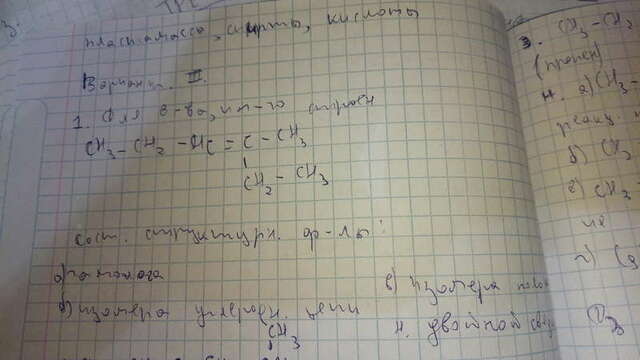 пластмассы, спирты, кислоты
Вариант III.
1. Для в-ва, им-го строен
CH3 - CH2 - HC = C - CH3
CH2 - CH3
Сост. структурн. ф-лы:
а) гомолога
б) изомера углеродн. цепи
CH3
в) изомера полож
н. двойной связ
3. CH3 - CH2
(пропен)
н. а) CH3 -
реакц.
б) CH3
в) CH3
г)